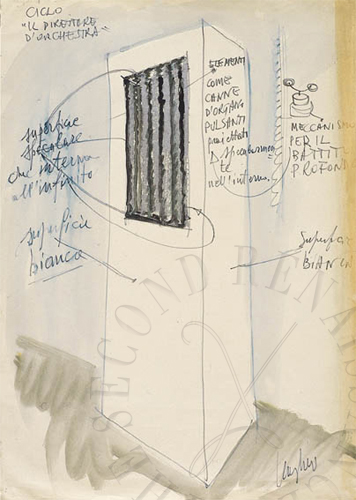 CICLO
"IL DIRETTORE
D'ORCHESTRA"
superficie
speculare
che interna
all'infinito
superficie
bianca
ELEMENTI
COME
CANNE
D'ORGANO
PULSANTI
nell'interno.
MECCANISMO
PER IL
BATTITO
PROFONDO
superficie
BIANCA
SECOND RENAI